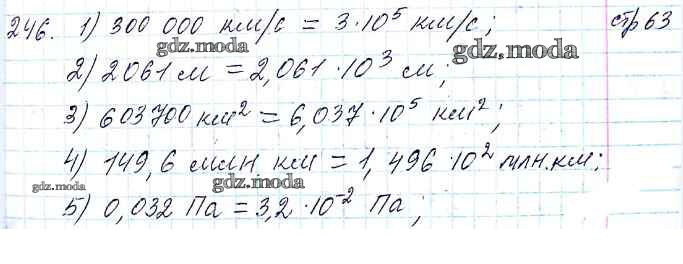 246. 1) 300 000 км/с = 3·10⁵ км/с; стр 63
gdz.moda
gdz.moda
2) 2061 м = 2,061·10³ м;
3) 603700 км² = 6,037·10⁵ км²;
4) 149,6 млн км = 1,496·10² млн.км;
gdz.moda
gdz.moda
5) 0,032 Па = 3,2·10⁻² Па;